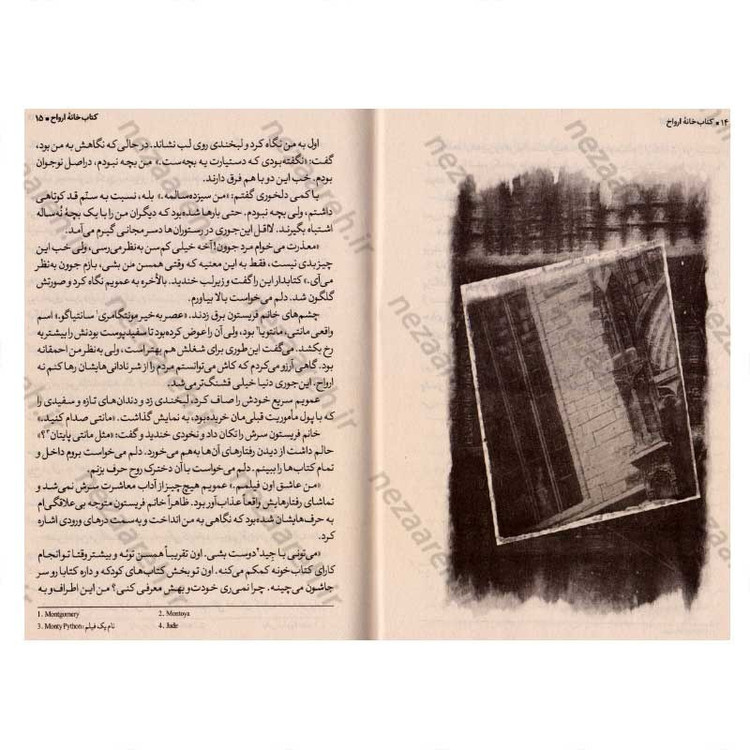 ۱۴ ● کتاب‌خانهٔ ارواح
کتاب‌خانهٔ ارواح ● ۱۵
اول به من نگاه کرد و لبخندی روی لب نشاند. در حالی که نگاهش به من بود،
گفت: «نگفته‌بودی که دستیارت یه بچه‌ست.» من بچه نبودم، دراصل نوجوان
بودم. خب این دو با هم فرق دارند.
با کمی دلخوری گفتم: «من سیزده‌سالمه.» بله، نسبت به سنّم قد کوتاهی
داشتم، ولی بچه نبودم. حتی بارها شده‌بود که دیگران من را با یک بچهٔ نُه‌ساله
اشتباه بگیرند. لااقل این‌جوری در رستوران‌ها دسر مجانی گیرم می‌آمد.
«معذرت می‌خوام مرد جوون! آخه خیلی کم‌سن به‌نظر می‌رسی، ولی خب این
چیز بدی نیست، فقط به این معنیه که وقتی همسن من بشی، بازم جوون به‌نظر
می‌آی.» کتابدار این را گفت و زیرلب خندید. بالأخره به عمویم نگاه کرد و صورتش
گلگون شد. دلم می‌خواست بالا بیاورم.
چشم‌های خانم فریستون برق زدند. «عصر به‌خیر مونتگامری¹ سانتیاگو.» اسم
واقعی مانتی، مانتویا² بود، ولی آن را عوض کرده‌بود تا سفیدپوست بودنش را بیشتر به
رخ بکشد. می‌گفت این‌طوری برای شغلش هم بهتر است، ولی به‌نظر من احمقانه
بود. گاهی آرزو می‌کردم که کاش می‌توانستم مردم را از شر نادانی‌هایشان رها کنم نه
ارواح. این‌جوری دنیا خیلی قشنگ‌تر می‌شد.
عمویم سریع خودش را صاف کرد، لبخندی زد و دندان‌های تازه و سفیدی را
که با پول مأموریت قبلی‌مان خریده‌بود، به نمایش گذاشت. «مانتی صدام کنید.»
خانم فریستون سرش را تکان داد و نخودی خندید و گفت: «مثل مانتی پایتان³؟»
حالم داشت از دیدن رفتارهای آن‌ها به‌هم می‌خورد. دلم می‌خواست بروم داخل و
تمام کتاب‌ها را ببینم. دلم می‌خواست با آن دخترک روح حرف بزنم.
«من عاشق اون فیلمم.» عمویم هیچ‌چیز از آداب معاشرت سرش نمی‌شد و
تماشای رفتارهایش واقعاً عذاب‌آور بود. ظاهراً خانم فریستون متوجه بی‌علاقگی‌ام
به حرف‌هایشان شده‌بود که نگاهی به من انداخت و به‌سمت درهای ورودی اشاره
کرد.
«می‌تونی با جید⁴ دوست بشی. اون تقریباً همسن توئه و بیشتر وقتا تو انجام
کارای کتاب‌خونه کمکم می‌کنه. اون تو بخش کتاب‌های کودکه و داره کتابا رو سر
جاشون می‌چینه. چرا نمی‌ری خودت‌و بهش معرفی کنی؟ من این اطراف‌و به
1. Montgomery
2. Montoya
3. Monty Python: نام یک فیلم
4. Jade
nezaareh.ir
nezaareh.ir
nezaareh.ir